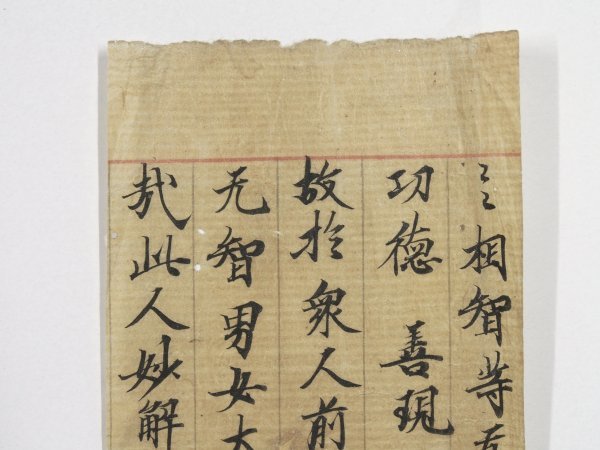 相智等
功德 善現
故於衆人前
无智男女大
哉此人妙解